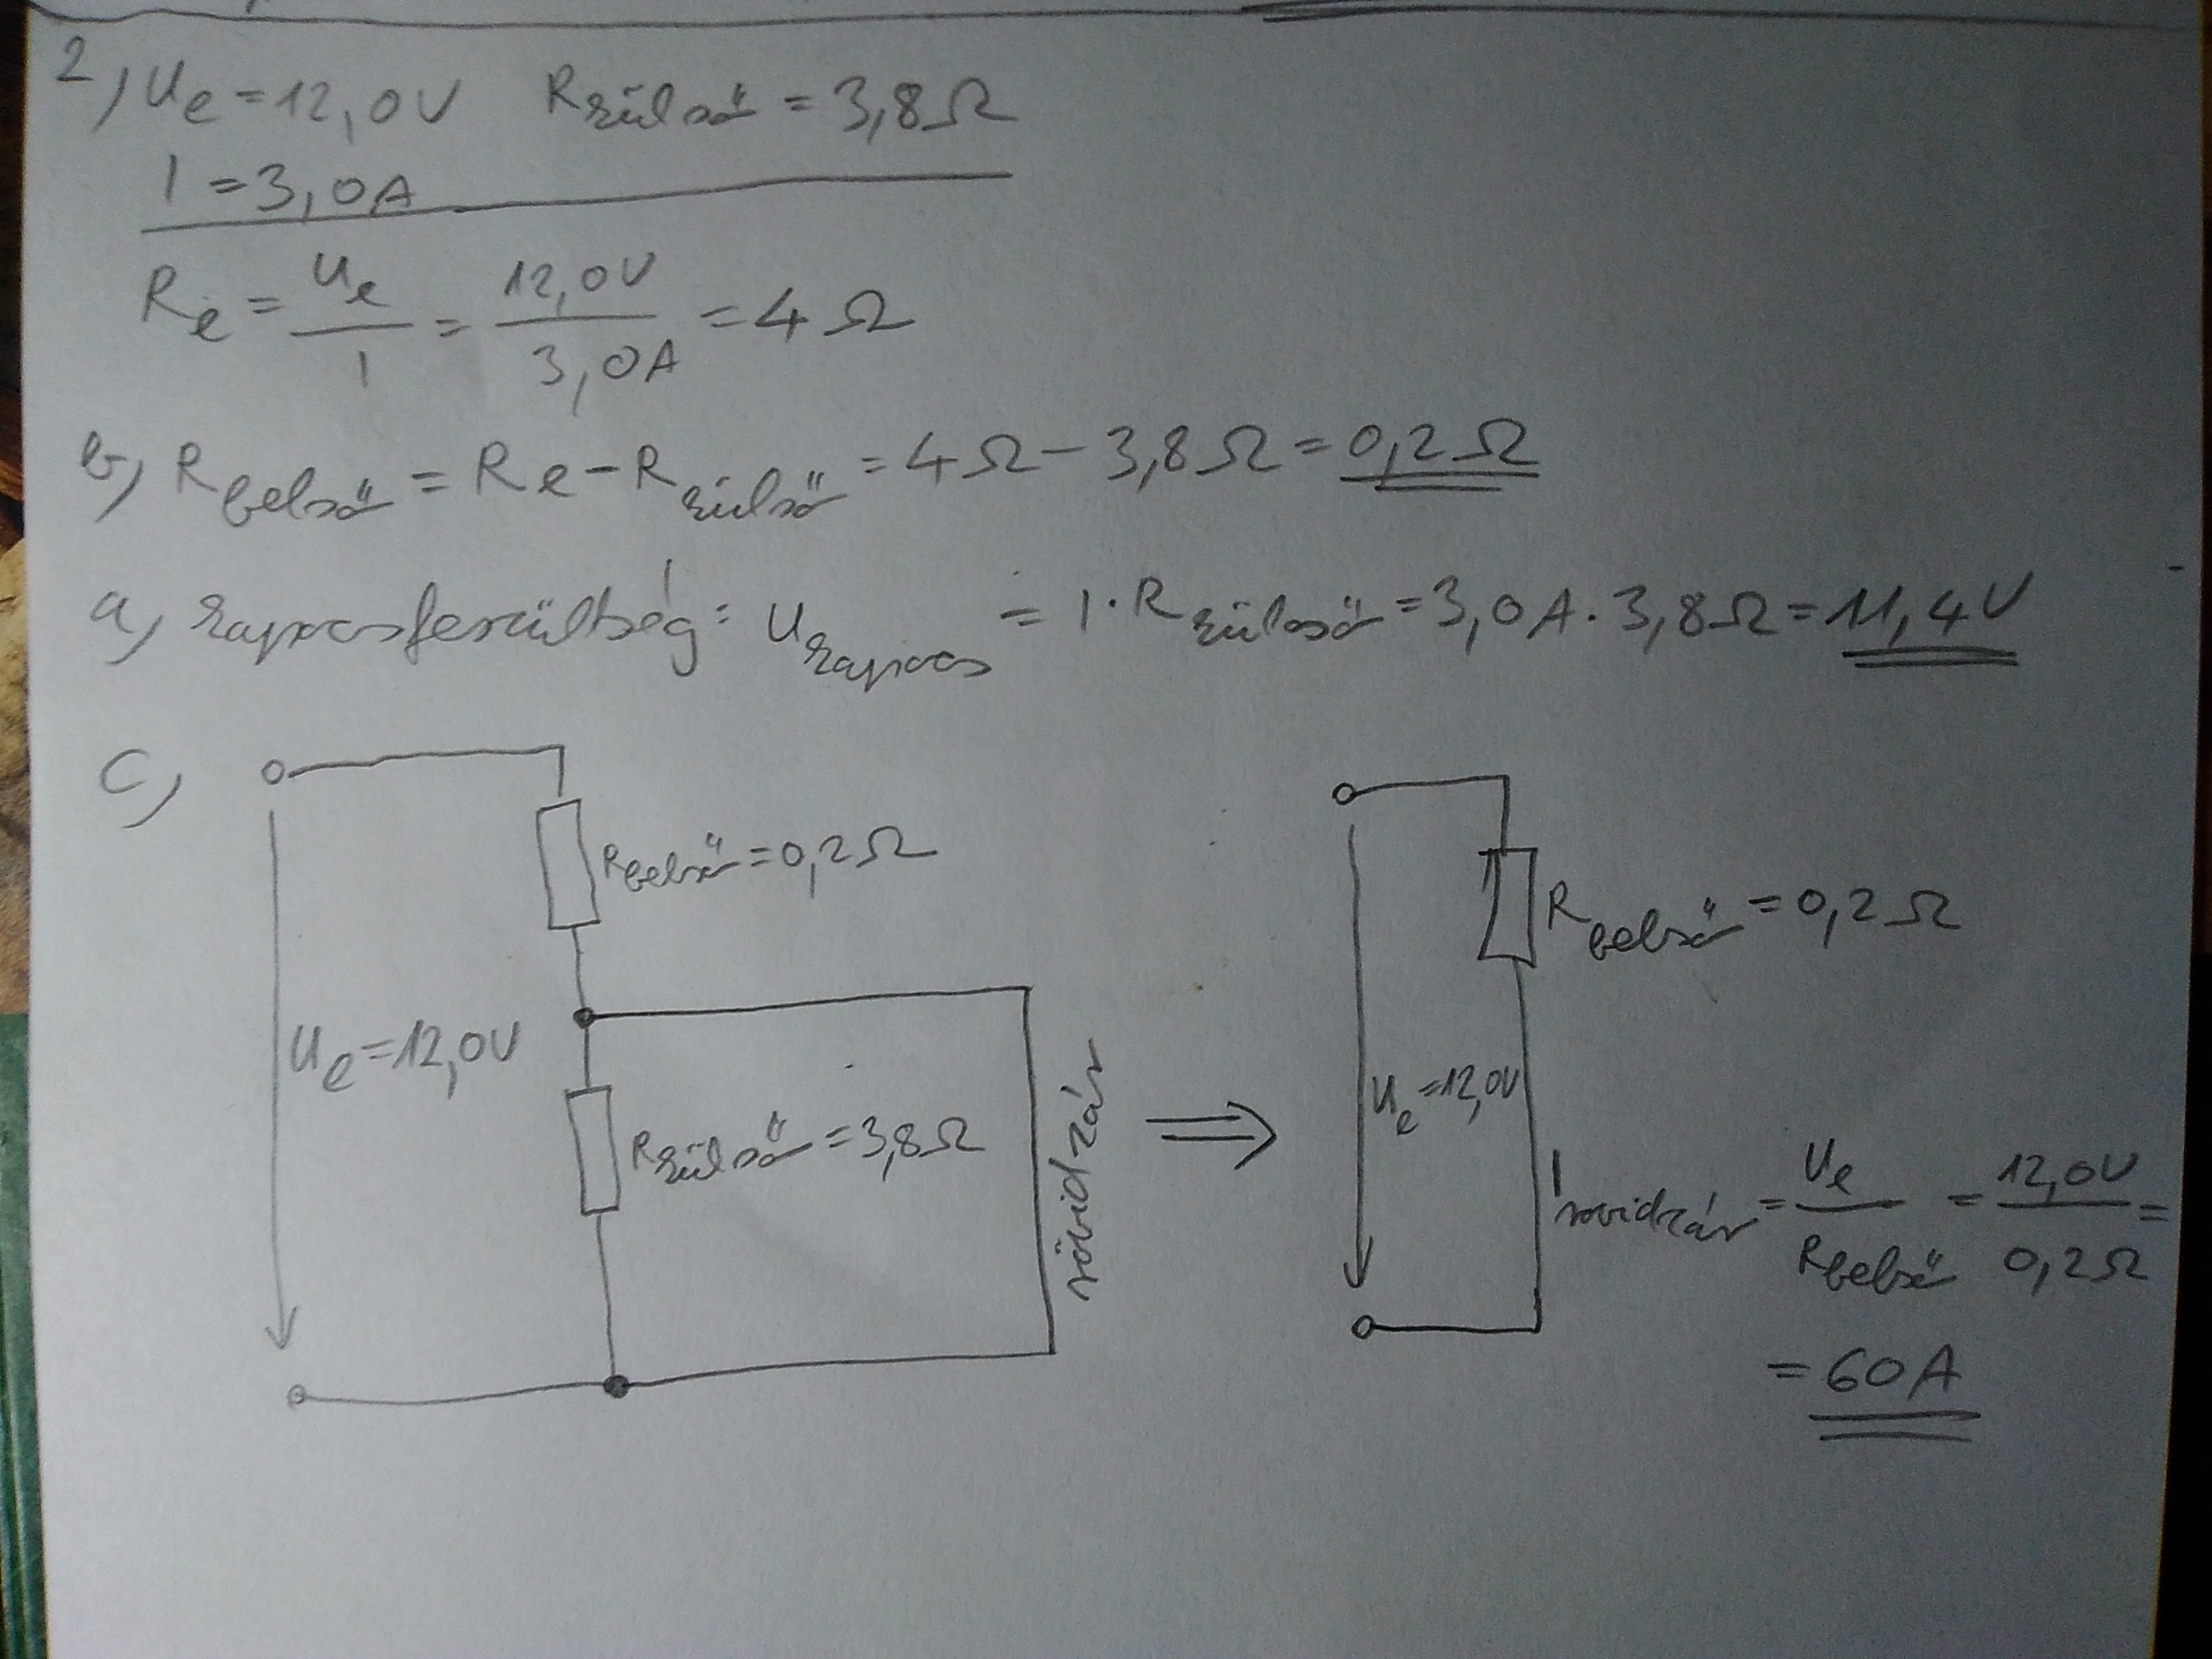 2, Ue = 12,0V Rkülső = 3,8Ω
I = 3,0A
Re = Ue / I = 12,0V / 3,0A = 4 Ω
b, Rbelső = Re - Rkülső = 4Ω - 3,8Ω = 0,2Ω
a, kapocsfeszültség: Ukapocs = I · Rkülső = 3,0A · 3,8Ω = 11,4V
c,
Rbelső = 0,2Ω
Ue = 12,0V
Rkülső = 3,8Ω
rövidzár
⇒
Rbelső = 0,2Ω
Ue = 12,0V
Irövidzár = Ue / Rbelső = 12,0V / 0,2Ω =
= 60A